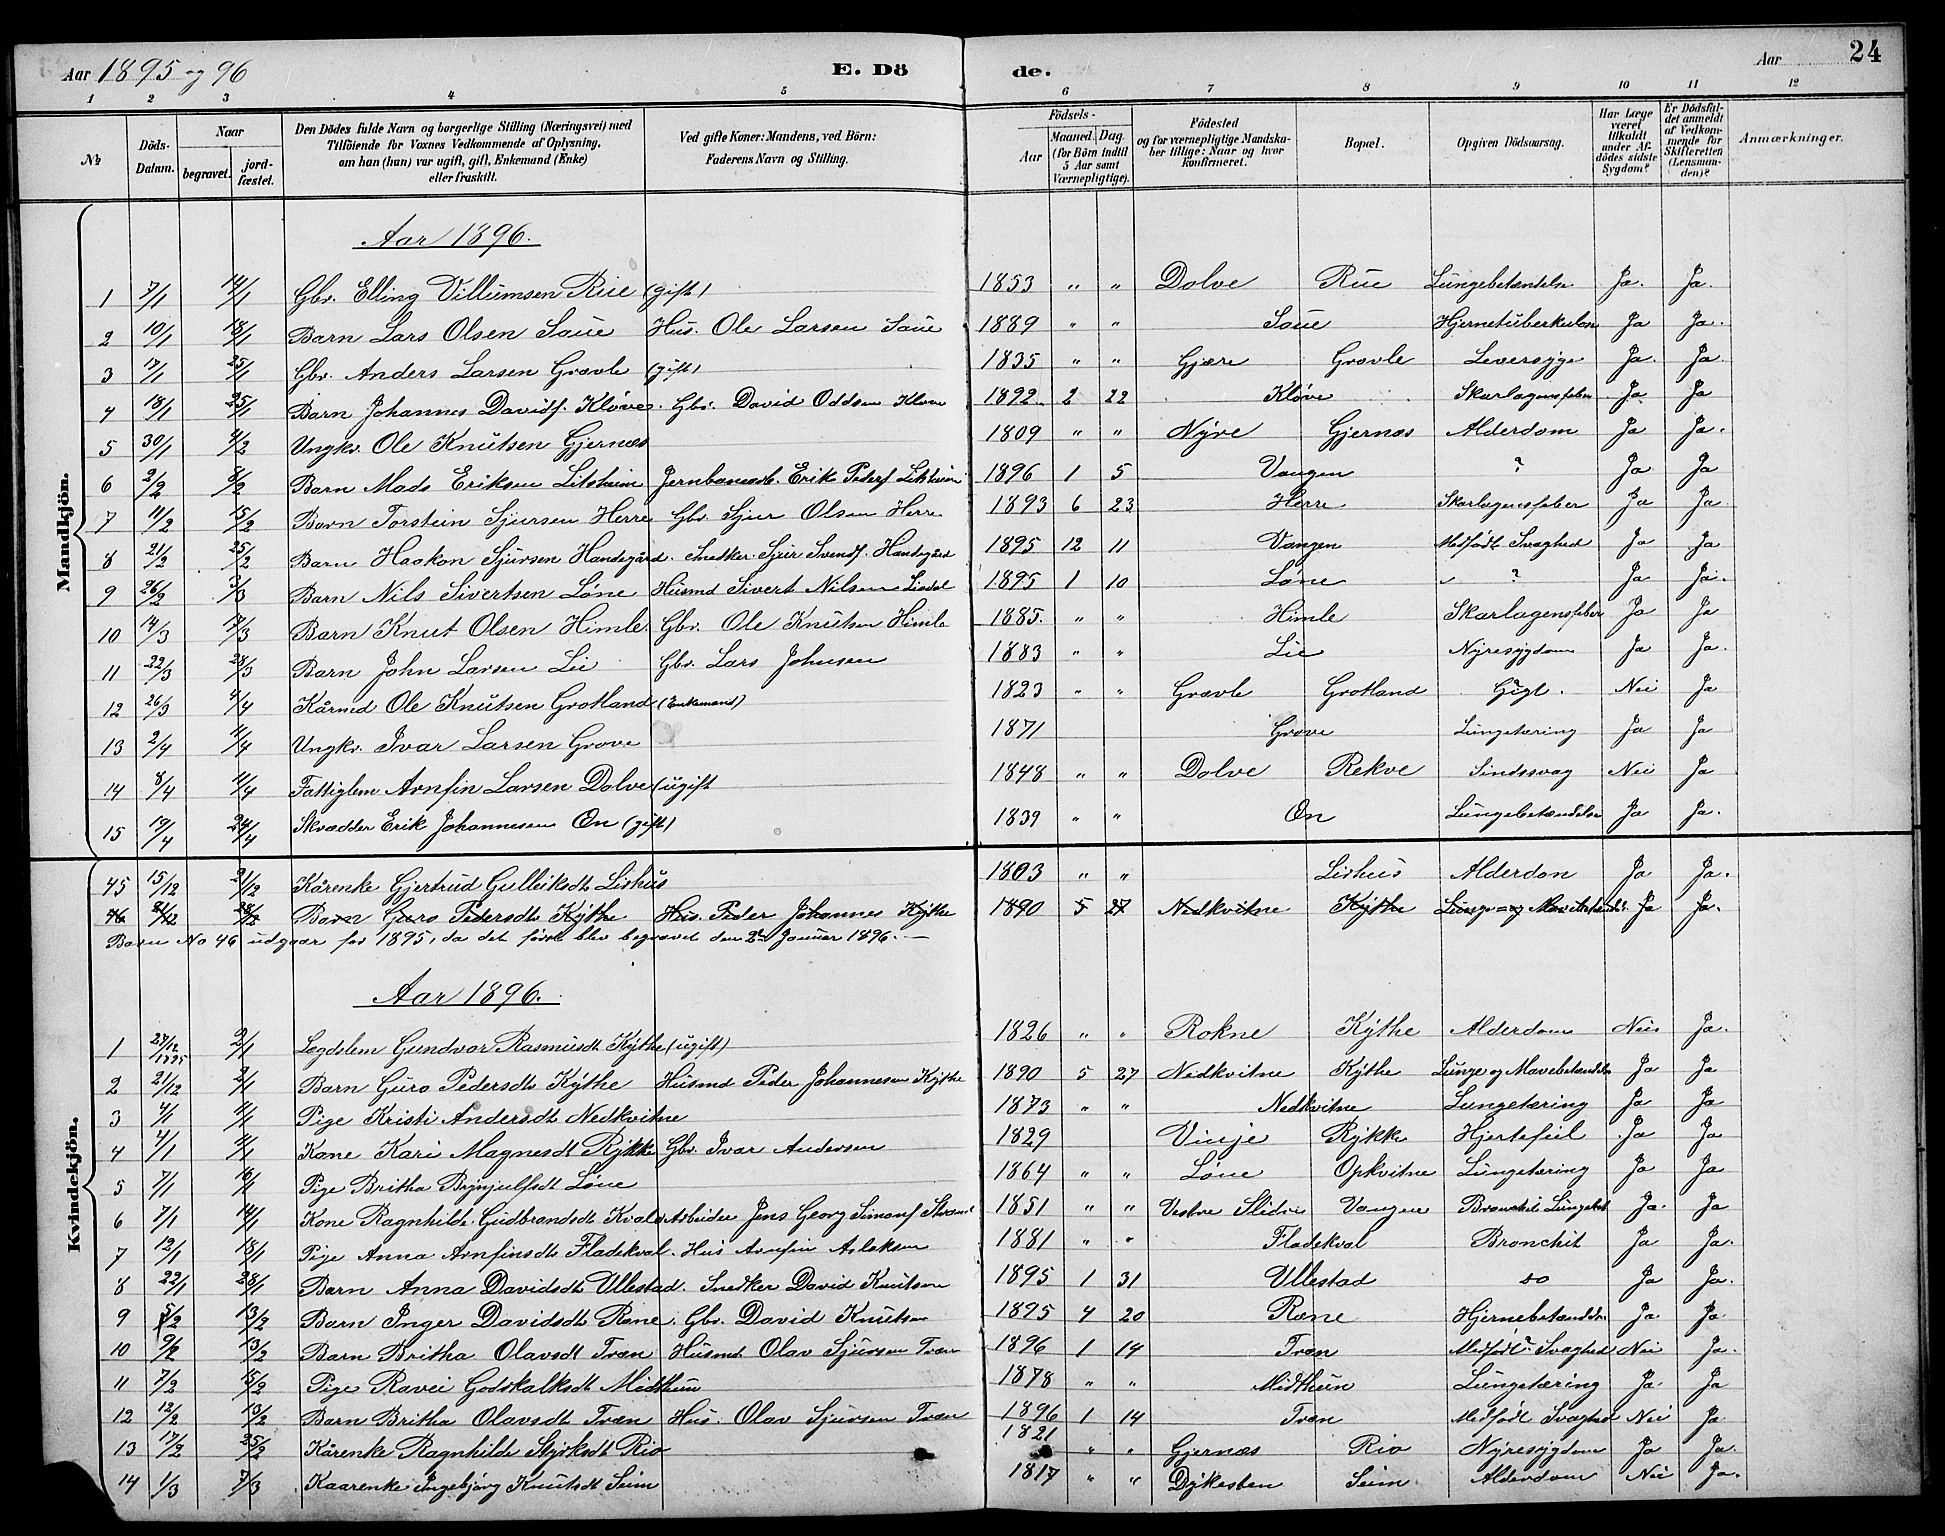 Aar 1895 og 96 E. Dö de. Aar 24
1 2 3 4 5 6 7 8 9 10 11 12
No Döds-Datum. Naar begravet. jordfæstet. Den Dödes fulde Navn og borgerlige Stilling (Næringsvei) med Tilföiende for Voxnes Vedkommende af Oplysning, om han (hun) var ugift, gift, Enkemand (Enke) eller fraskilt. Ved gifte Koner: Mandens, ved Börn: Faderens Navn og Stilling. Födsels- Aar Maaned. Dag. (for Börn indtil 5 Aar samt Værnepligtige). Födested og for værnepligtige Mandskaber tillige: Naar og hvor konfirmeret. Bopæl. Opgiven Dödsaarsag. Har Læge været tilkaldt under Afdödes sidste Sygdom? Er Dödsfaldet anmeldt af Vedkommende for Skifteretten (Lensmanden)? Anmærkninger.
Mandkjön.
Aar 1896.
1 7/1 14/1 Gbr. Elling Villumsen Rue (gift) 1853 " " Dolve Rue Lungebetændelse Ja. Ja.
2 10/1 18/1 Barn Lars Olsen Saue Hus. Ole Larsen Saue 1889 " " Saue Hjernetuberkulos Ja Ja.
3 17/1 25/1 Gbr. Anders Larsen Gravle (gift) 1835 " " Gjære Gravle Leversyge Ja. Ja.
4 18/1 25/1 Barn Johannes Davids. Kløve. Gbr. David Oddsen Kløve 1892 2 22 Kløve Skarlagensfeber Ja Ja
5 30/1 4/2 Ungkr. Ole Knutsen Gjernæs 1809 " " Nyre Gjernæs Alderdom Ja Ja.
6 2/2 8/2 Barn Mads Eriksen Litsheim Jernbanearb. Erik Peders Litsheim 1896 1 5 Vangen ? Ja Ja
7 11/2 15/2 Barn Torstein Sjursen Herre Gbr. Sjur Olsen Herre 1893 6 23 Herre Skarlagensfeber Ja Ja.
8 21/2 25/2 Barn Haakon Sjursen Handegård. Snedker Sjur Svends. Handegård 1895 12 11 Vangen Medfødt Svaghed Ja Ja
9 26/2 5/3 Barn Nils Sivertsen Løne Husmd Sivert Nilsen 1895 1 10 Løne ? Ja Ja.
10 14/3 17/3 Barn Knut Olsen Himle. Gbr. Ole Knutsen Himle 1885. " " Himle Skarlagensfeber Ja Ja
11 22/3 28/3 Barn John Larsen Lie Gbr. Lars Johnsen 1883 " " Lie Nyresygdom Ja Ja.
12 26/3 4/4 Kårmd Ole Knutsen Grotland (Enkemand) 1823 " " Gravle Grotland Gigt. Nei Ja
13 2/4 11/4 Ungkr. Ivar Larsen Grove 1871 Grove Lungetæring Ja Ja
14 8/4 11/4 Fattiglem Arnfin Larsen Dolve (ugift 1848 " " Dolve Rekve Sindssvag Nei Ja
15 19/4 24/4 Skrædder Erik Johannesen Øn (gift) 1839 " " Øn Lungebetændelse Ja Ja.
Kvindekjön.
45 15/12 21/12 Kårenke Gjertrud Gulleiksdt Lishus 1803 " " Lishus Alderdom Ja Ja.
46 21/12 28/12 Barn Guro Pedersdt Kythe Hus. Peder Johannes Kythe 1890 5 27 Nedkvitne Kythe Lunge- og Mavebetænd. Ja Ja.
Barn No 46 udgaar for 1895, da det først blev begravet den 2den Januar 1896. —
Aar 1896.
1 27/12 1895 2/1 Lægdslem Gundvor Rasmusdt Kythe (ugift) 1826 " " Rokne Kythe Alderdom Nei Ja.
2 21/12 2/1 Barn Guro Pedersdt Kythe Husmd Peder Johannesen Kythe 1890 5 27 Nedkvitne Kythe Lunge og Mavebetændels Ja Ja
3 4/1 11/1 Pige Kristi Andersdt Nedkvitne 1873 " " Nedkvitne Lungetæring Ja Ja
4 4/1 11/1 Kone Kari Magnesdt Rykke Gbr. Ivar Andersen 1829 Vinje Rykke Hjertefeil Ja Ja
5 7/1 16/1 Pige Britha Brynjulfsdt Løne 1864 " " Løne Opkvitne Lungetæring Ja Ja
6 7/1 14/1 Kone Ragnhilde Gudbrandsdt Kvale Arbeider Jens Georg Simons Strand 1851 " " Vestre Slidre Vangen Bronchit Lungebet Ja. Ja
7 12/1 18/1 Pige Anna Arnfinsdt Fladekval. Hus Arnfin Aslaksen 1881 " " Fladekval Bronchit Ja Ja.
8 22/1 28/1 Barn Anna Davidsdt Ullestad. Snedker David Knutsen 1895 1 31 Ullestad do Ja Ja.
9 5/2 13/2 Barn Inger Davidsdt Rene. Gbr. David Knutsen 1895 4 20 Rene Hjernebetændels. Ja. Ja
10 9/2 13/2 Barn Britha Olavsdt Træn Husmd Olav Sjursen Træn 1896 1 14 Træn Medfødt ? Svaghed Nei Ja.
11 7/2 15/2 Pige Ravei Godskalksdt Midthun 1878 " " Midthun Lungetæring Ja Ja
12 12/2 13/2 Barn Britha Olavsdt Træn Hus. Olav Sjursen Træn 1896 1 14 Træn Medfødt Svaghed Nei Ja
13 17/2 25/2 Kårenke Ragnhilde Styrksdt Rio 1821 " " Gjernæs Rio Nyresygdom Ja Ja.
14 1/3 7/3 Kaarenke Ingebjørg Knutsdt Seim 1817 " " Dykesten Seim Alderdom Nei Ja.